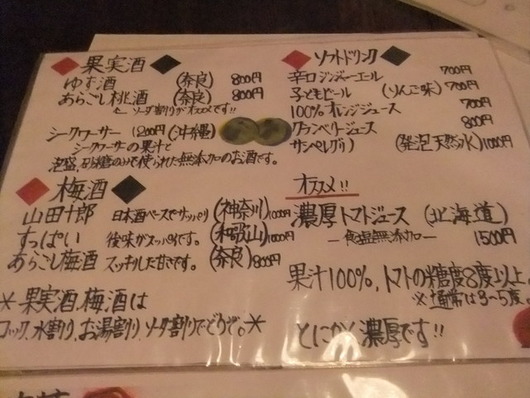 果実酒
ゆず酒 (奈良) 800円
あらごし桃酒 (奈良) 800円
ソーダ割りがオススメです!!
シークワーサー 1200円 (沖縄)
シークワーサーの果汁と
泡盛、砂糖のみで使られた無添加のお酒です。
梅酒
山田十郎 日本酒ベースでサッパリ (神奈川) 1000円
すっぱい 後味がスッパイです。 (和歌山) 1000円
あらごし梅酒 スッキリした甘です。 (奈良) 800円
*果実酒、梅酒は
ロック、水割り、お湯割り、ソーダ割りでどうぞ。*
ソフトドリンク
辛口ジンジャーエール 700円
子どもビール (りんご味) 700円
100%オレンジジュース 700円
クランベリージュース 800円
サンペレグリノ (発泡天然水) 1000円
オススメ!!
濃厚トマトジュース (北海道)
―食塩無添加― 1500円
果汁100%、トマトの糖度8度以上。
※通常は3~5度
とにかく濃厚です!!